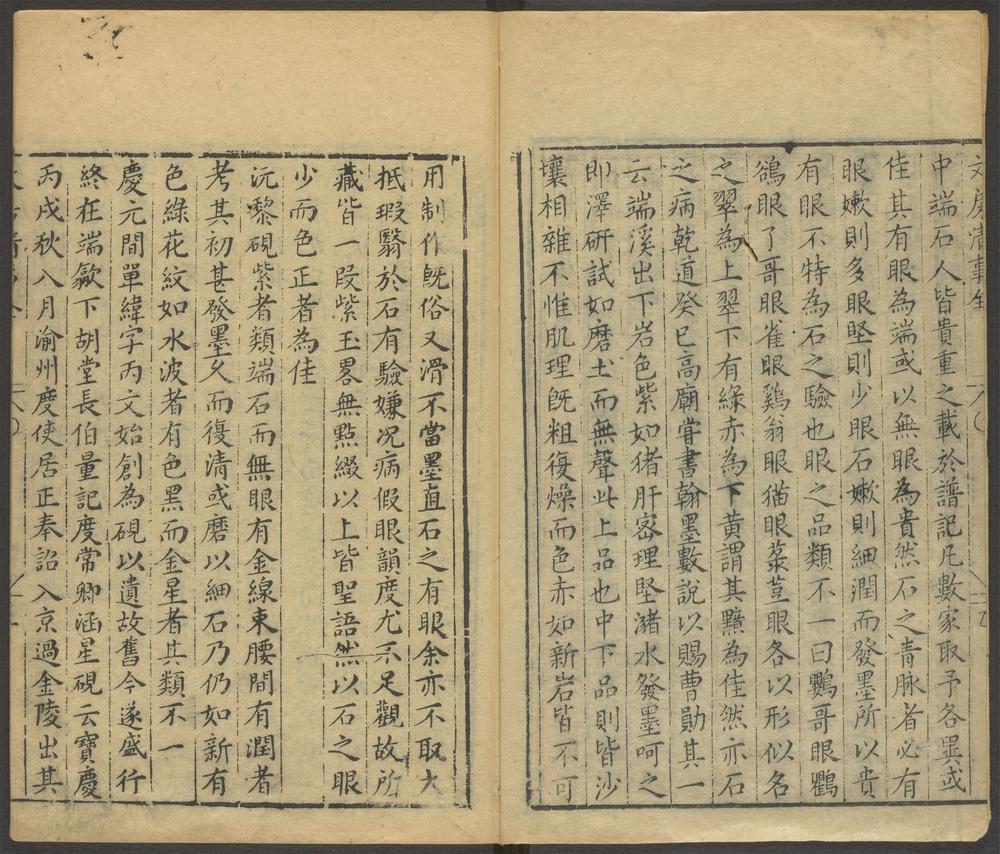 文房清事全
中端石人皆貴重之載於譜記凡數家取予各異或
佳其有眼為端或以無眼為貴然石之青脉者必有
眼嫰則多眼堅則少眼石嫰則細潤而發墨所以貴
有眼不特為石之驗也眼之品類不一曰鸚哥眼鸜
鵒眼了哥眼雀眼鷄翁眼猫眼菉荳眼各以形似名
之翠為上翠下有綠赤為下黃謂其黯為佳然亦石
之病乾道癸巳高廟嘗書翰墨數說以賜曹勛其一
云端溪出下岩色紫如猪肝宻理堅潴水發墨呵之
即澤研試如磨圡而無聲此上品也中下品則皆沙
壤相雜不惟肌理旣粗復燥而色赤如新岩皆不可
用制作旣俗又滑不當墨直石之有眼余亦不取大
抵瑕翳於石有驗嫌况病假眼韻度尤不足觀故所
藏皆一叚紫玉畧無點綴以上皆聖語然以石之眼
少而色正者為佳
沅黎硯紫者類端石而無眼有金線束腰間有潤者
考其初甚發墨久而復清或磨以細石乃仍如新有
色綠花紋如水波者有色黑而金星者其類不一
慶元間單緯字丙文始創為硯以遺故舊今遂盛行
終在端歙下胡堂長伯量記度常卿涵星硯云寶慶
丙戌秋八月渝州度使居正奉詔入京過金陵出其